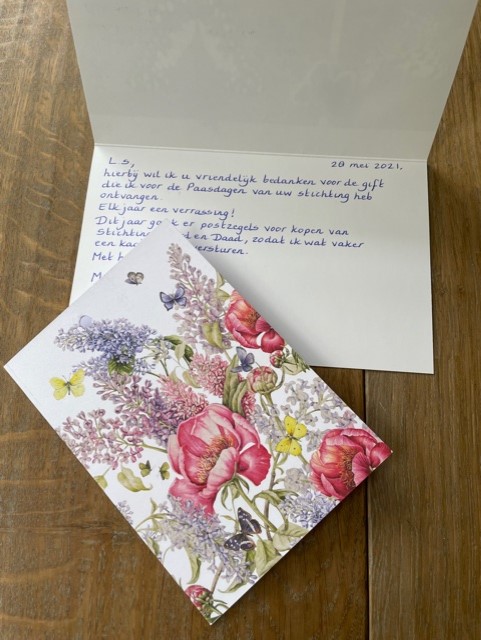 L S, 28 mei 2021.
hierbij wil ik u vriendelijk bedanken voor de gift
die ik voor de Paasdagen van uw stichting heb
ontvangen.
Elk jaar een verrassing!
Dit jaar ga ik er postzegels voor kopen van
Stichting en Daad, zodat ik wat vaker
een versturen.
Met